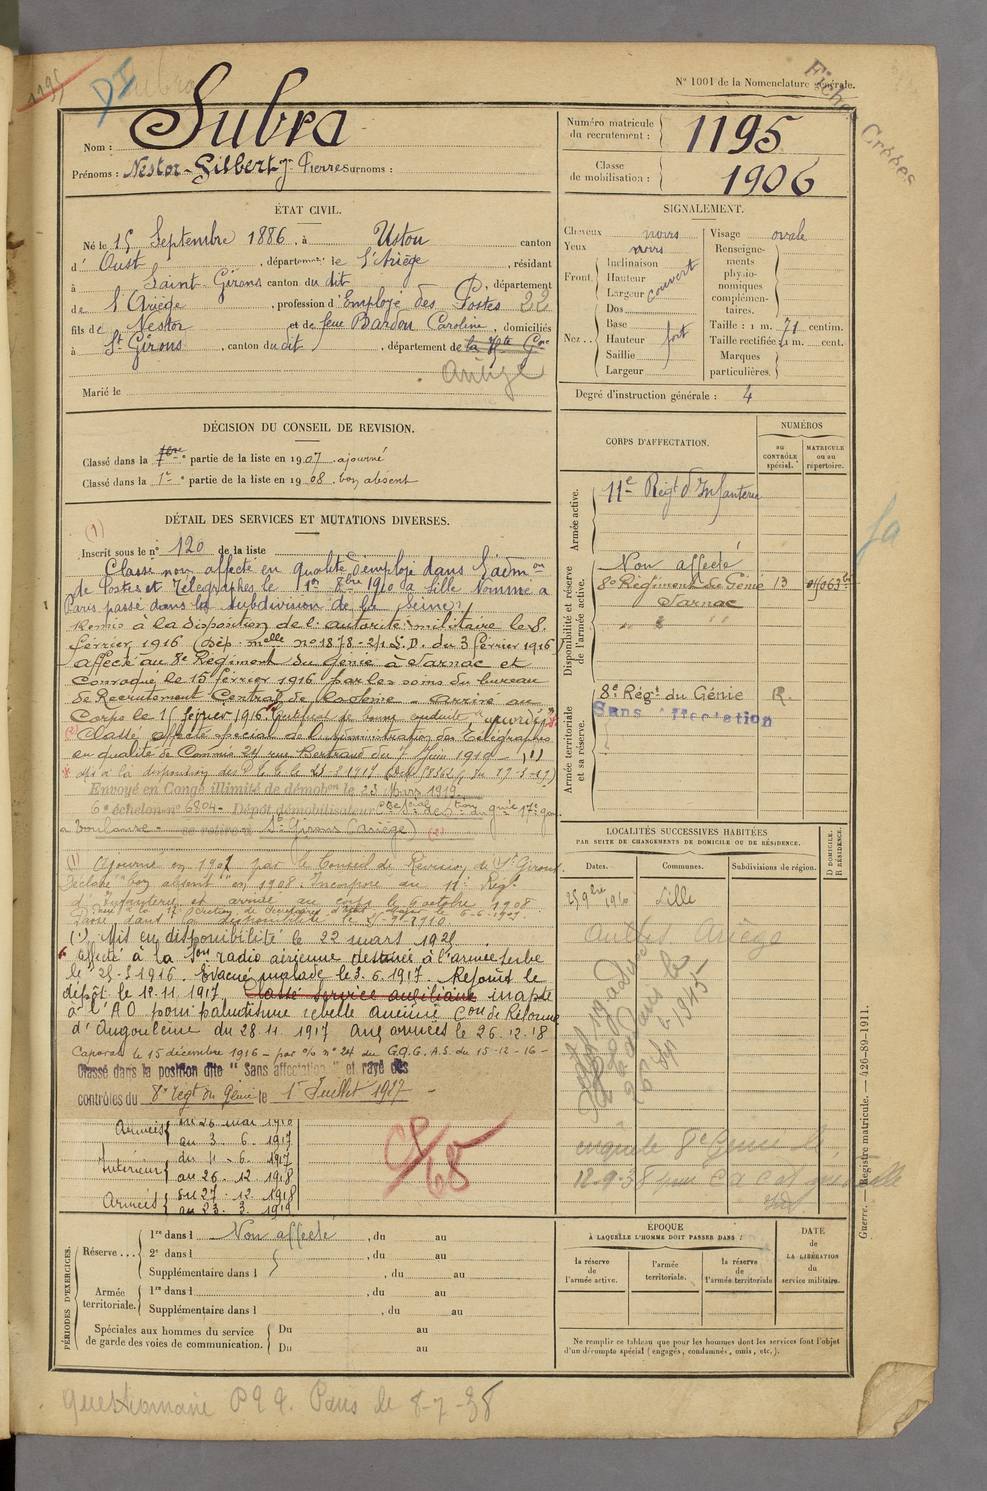 N° 1001 de la Nomenclature générale.
Fiches Créées
1195
DI
Nom : Subra
Prénoms : Nestor-Gilbert-J-Pierre surnoms :
Numéro matricule du recrutement : 1195
Classe de mobilisation : 1906
ÉTAT CIVIL.
Né le 15 Septembre 1886, à Ustou canton
d' Oust, département de l'Ariège, résidant
à Saint-Girons canton du dit, département
de l'Ariège, profession d'Employé des Postes 22
fils de Nestor et de feue Bardou Caroline, domiciliés
à St Girons, canton du dit, département de la Hte Gne
Ariège
Marié le
SIGNALEMENT.
Cheveux noirs
Yeux noirs
Front. Inclinaison
Hauteur
Largeur
couvert
Nez.. Dos
Base
Hauteur
Saillie
Largeur
fort
Visage ovale
Renseignements physionomiques complémentaires.
Taille : 1 m. 71 centim.
Taille rectifiée : 1 m. cent.
Marques particulières.
Degré d'instruction générale : 4
DÉCISION DU CONSEIL DE REVISION.
Classé dans la 1ère partie de la liste en 1907 ajourné
Classé dans la 1re partie de la liste en 1908. bon absent
DÉTAIL DES SERVICES ET MUTATIONS DIVERSES.
(1)
Inscrit sous le n° 120 de la liste
Classé non affecté en qualité d'employé dans l'adm on
de Postes et Télégraphes le 1er 8bre 1910 à Lille Nommé à
Paris passé dans la subdivision de la Seine
Remis à la disposition de l'autorité militaire le 8.
février 1916 (Dép. melle n° 1878-2/1 S.D. du 3 février 1916)
affecté au 8e Régiment du Génie à Jarnac et
convoqué le 15 février 1916 par les soins du bureau
de Recrutement Central de la Seine - arrivé au
Corps le 15 février 1916. Certificat de bonne conduite "accordé"
(2) Classé affecté spécial de l'Administration des Télégraphes
en qualité de Commis 24 rue Bertrand du 7 Juin 1919 - (1)
Envoyé en Congé illimité de démob on le 23 Mars 1919
6e échelon n° 6804 - Dépôt démobilisateur
à Toulouse - se retire à St Girons (Ariège) (2)
(1) Ajourné en 1907 par le Conseil de Révision de St Girons
Déclaré "bon absent" en 1908. Incorporé au 11e Régt
d'Infanterie et arrivé au corps le 6 octobre 1908
Passé dans la disponibilité le
(2) Mis en disponibilité le 22 mars 1921
affecté à la Son radio aérienne destinée à l'armée serbe
le 25-5-1916. Evacué malade le 3.6.1917. Rejoint le
dépôt le 12.11.1917. Classé service auxiliaire inapte
à l'A O pour paludisme rebelle anémie Con de Réforme
d'Angoulême du 28.11.1917 aux armées le 26.12.18
Caporal le 15 décembre 1916 - par o/o n° 24 du G.Q.G. A.S. du 15-12-16 -
Classé dans la position dite " Sans affectation " et rayé des
contrôles du 8e régt du Génie le 1er Juillet 1927
Armées { du 26 mai 1916
au 3.6.1917
Intérieur { du 4-6.1917
au 26.12.1918
Armées { du 27.12.1918
au 23.3.1919
CP
65
CORPS D'AFFECTATION.
NUMÉROS
au CONTRÔLE spécial.
MATRICULE ou au répertoire.
Armée active.
11e Régt d'Infanterie
Disponibilité et réserve de l'armée active.
Non affecté
8e Régiment de Génie 13
Jarnac
Armée territoriale et sa réserve.
8e Régt du Génie R.
Sans affectation
LOCALITÉS SUCCESSIVES HABITÉES
PAR SUITE DE CHANGEMENTS DE DOMICILE OU DE RÉSIDENCE.
Dates.
Communes.
Subdivisions de région.
D DOMICILE. R RÉSIDENCE.
25 9bre 1910 Lille
Ariège
enquête 8e Génie le
12-9-38
PÉRIODES D'EXERCICES.
Réserve... 1re dans l Non affecté, du au
2e dans l , du au
Supplémentaire dans l , du au
Armée territoriale. 1re dans l , du au
Supplémentaire dans l , du au
Spéciales aux hommes du service de garde des voies de communication. Du au
Du au
ÉPOQUE
À LAQUELLE L'HOMME DOIT PASSER DANS :
la réserve de l'armée active.
l'armée territoriale.
la réserve de l'armée territoriale
DATE de LA LIBÉRATION du service militaire.
Ne remplir ce tableau que pour les hommes dont les services font l'objet
d'un décompte spécial (engagés, condamnés, omis, etc.).
Guerre. — Registre matricule. — 426-89-1911.
questionnaire P Q Q. Paris le 8-7-38